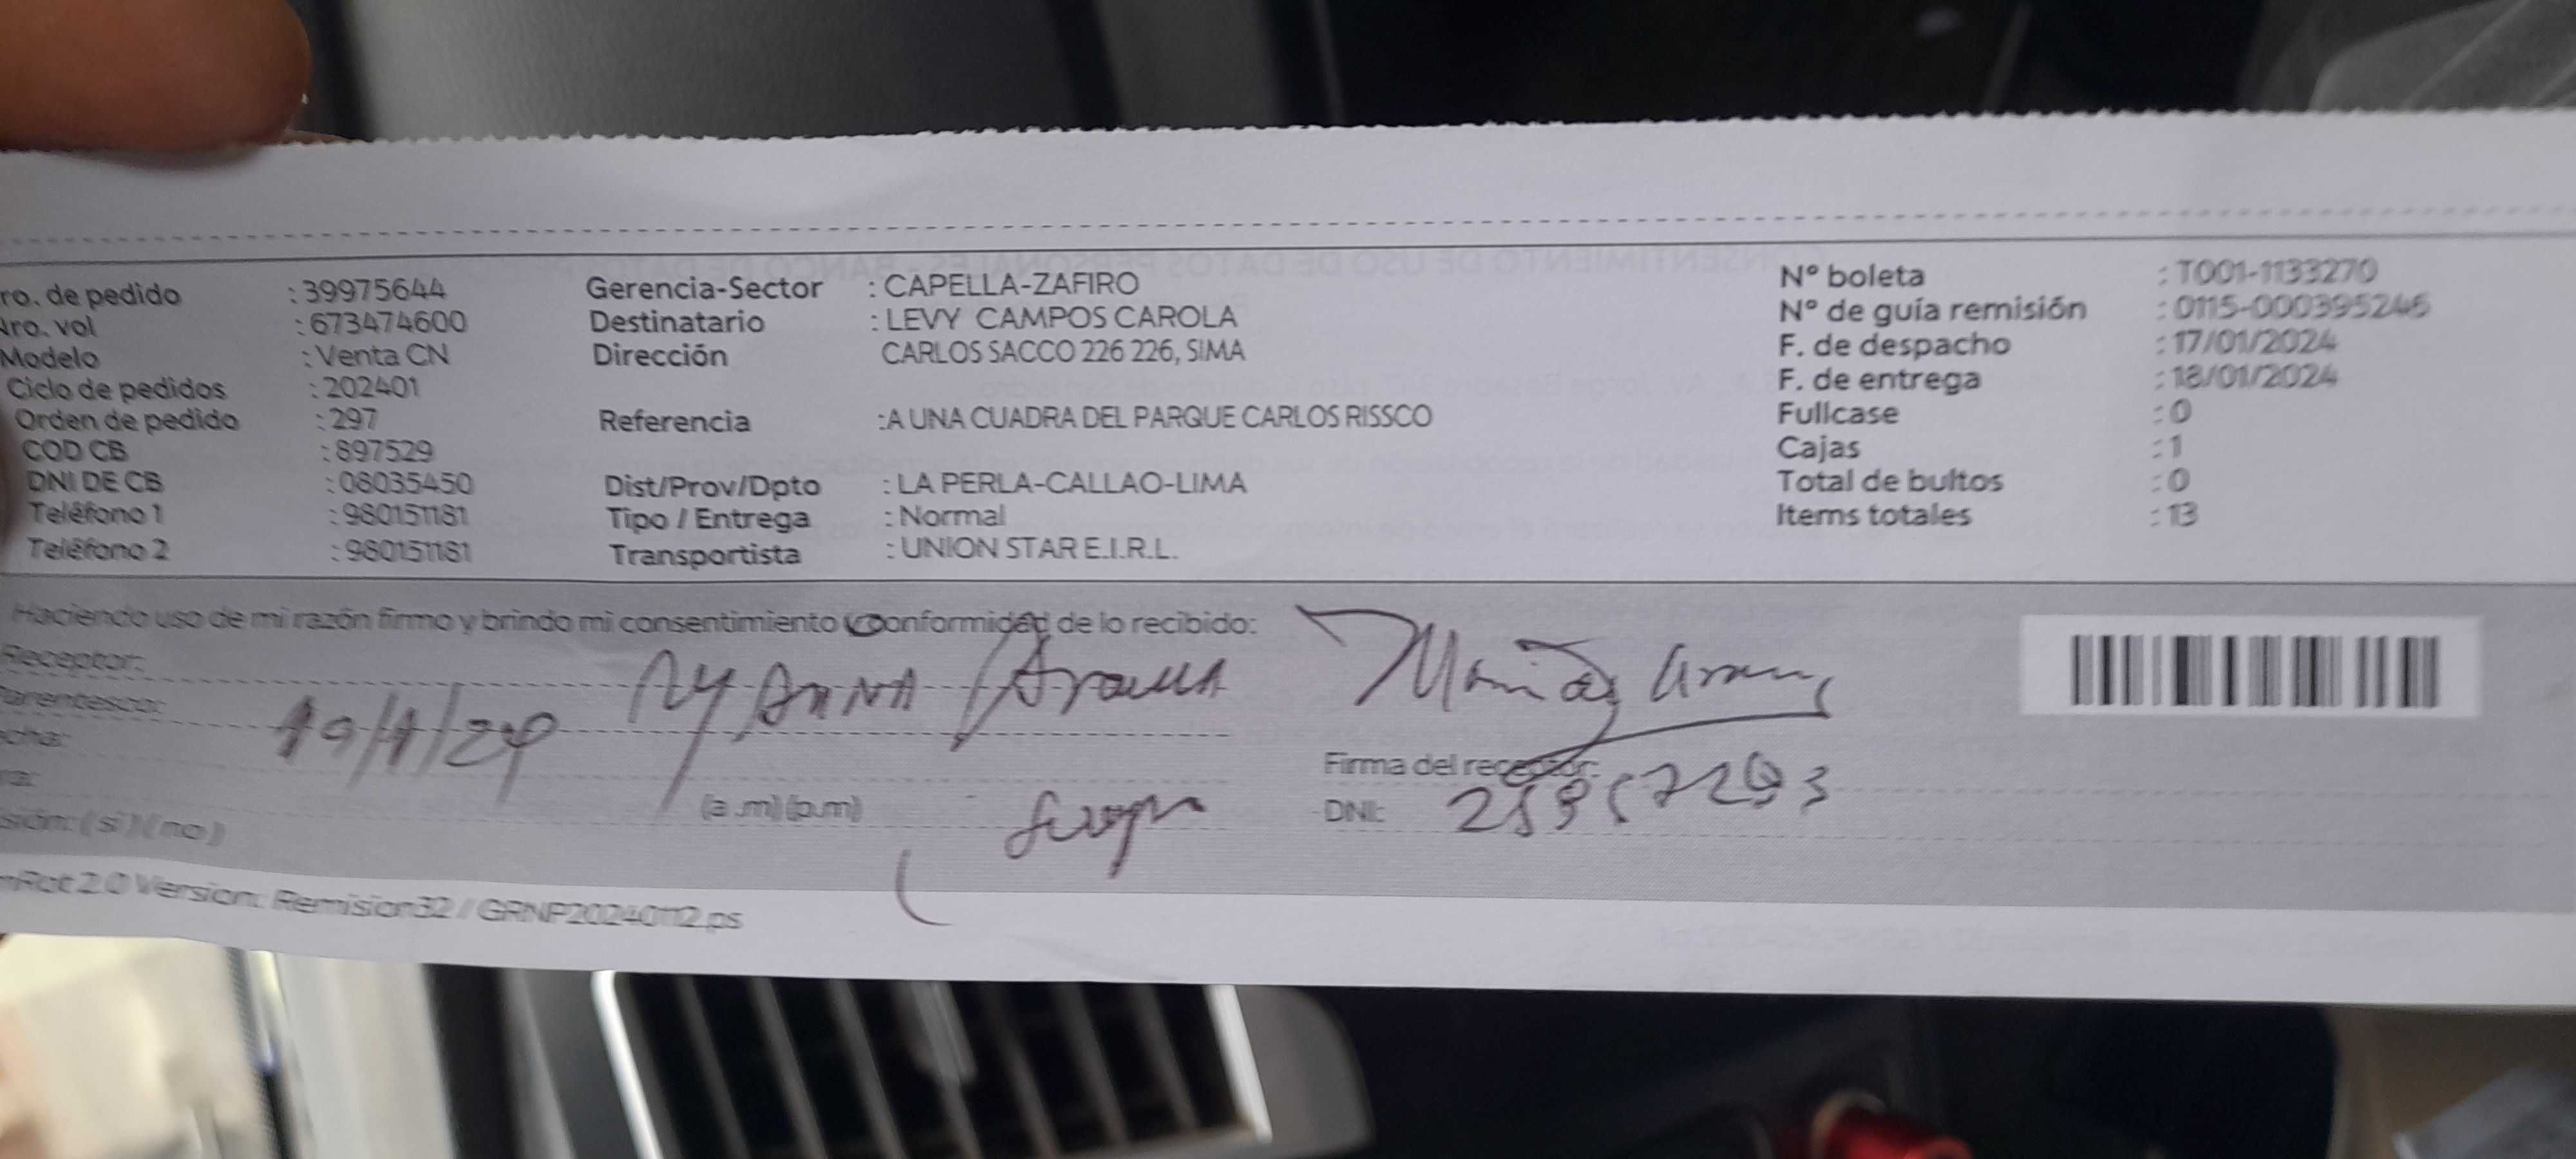 ro. de pedido : 39975644
Nro. vol : 673474600
Modelo : Venta CN
Ciclo de pedidos : 202401
Orden de pedido : 297
COD CB : 897529
DNI DE CB : 08035450
Teléfono 1 : 980151181
Teléfono 2 : 980151181
Gerencia-Sector : CAPELLA-ZAFIRO
Destinatario : LEVY CAMPOS CAROLA
Dirección CARLOS SACCO 226 226, SIMA
Referencia :A UNA CUADRA DEL PARQUE CARLOS RISSCO
Dist/Prov/Dpto : LA PERLA-CALLAO-LIMA
Tipo / Entrega : Normal
Transportista : UNION STAR E.I.R.L.
Nº boleta : T001-1133270
Nº de guía remisión : 0115-000395246
F. de despacho : 17/01/2024
F. de entrega : 18/01/2024
Fullcase : 0
Cajas : 1
Total de bultos : 0
Items totales : 13
Haciendo uso de mi razón firmo y brindo mi consentimiento y conformidad de lo recibido:
Receptor:
arentesco:
echa:
ra:
(a.m) (p.m)
sión: ( si ) ( no )
Firma del receptor:
DNI:
mRot 2.0 Version: Remision32 // GRNP20240112.ps